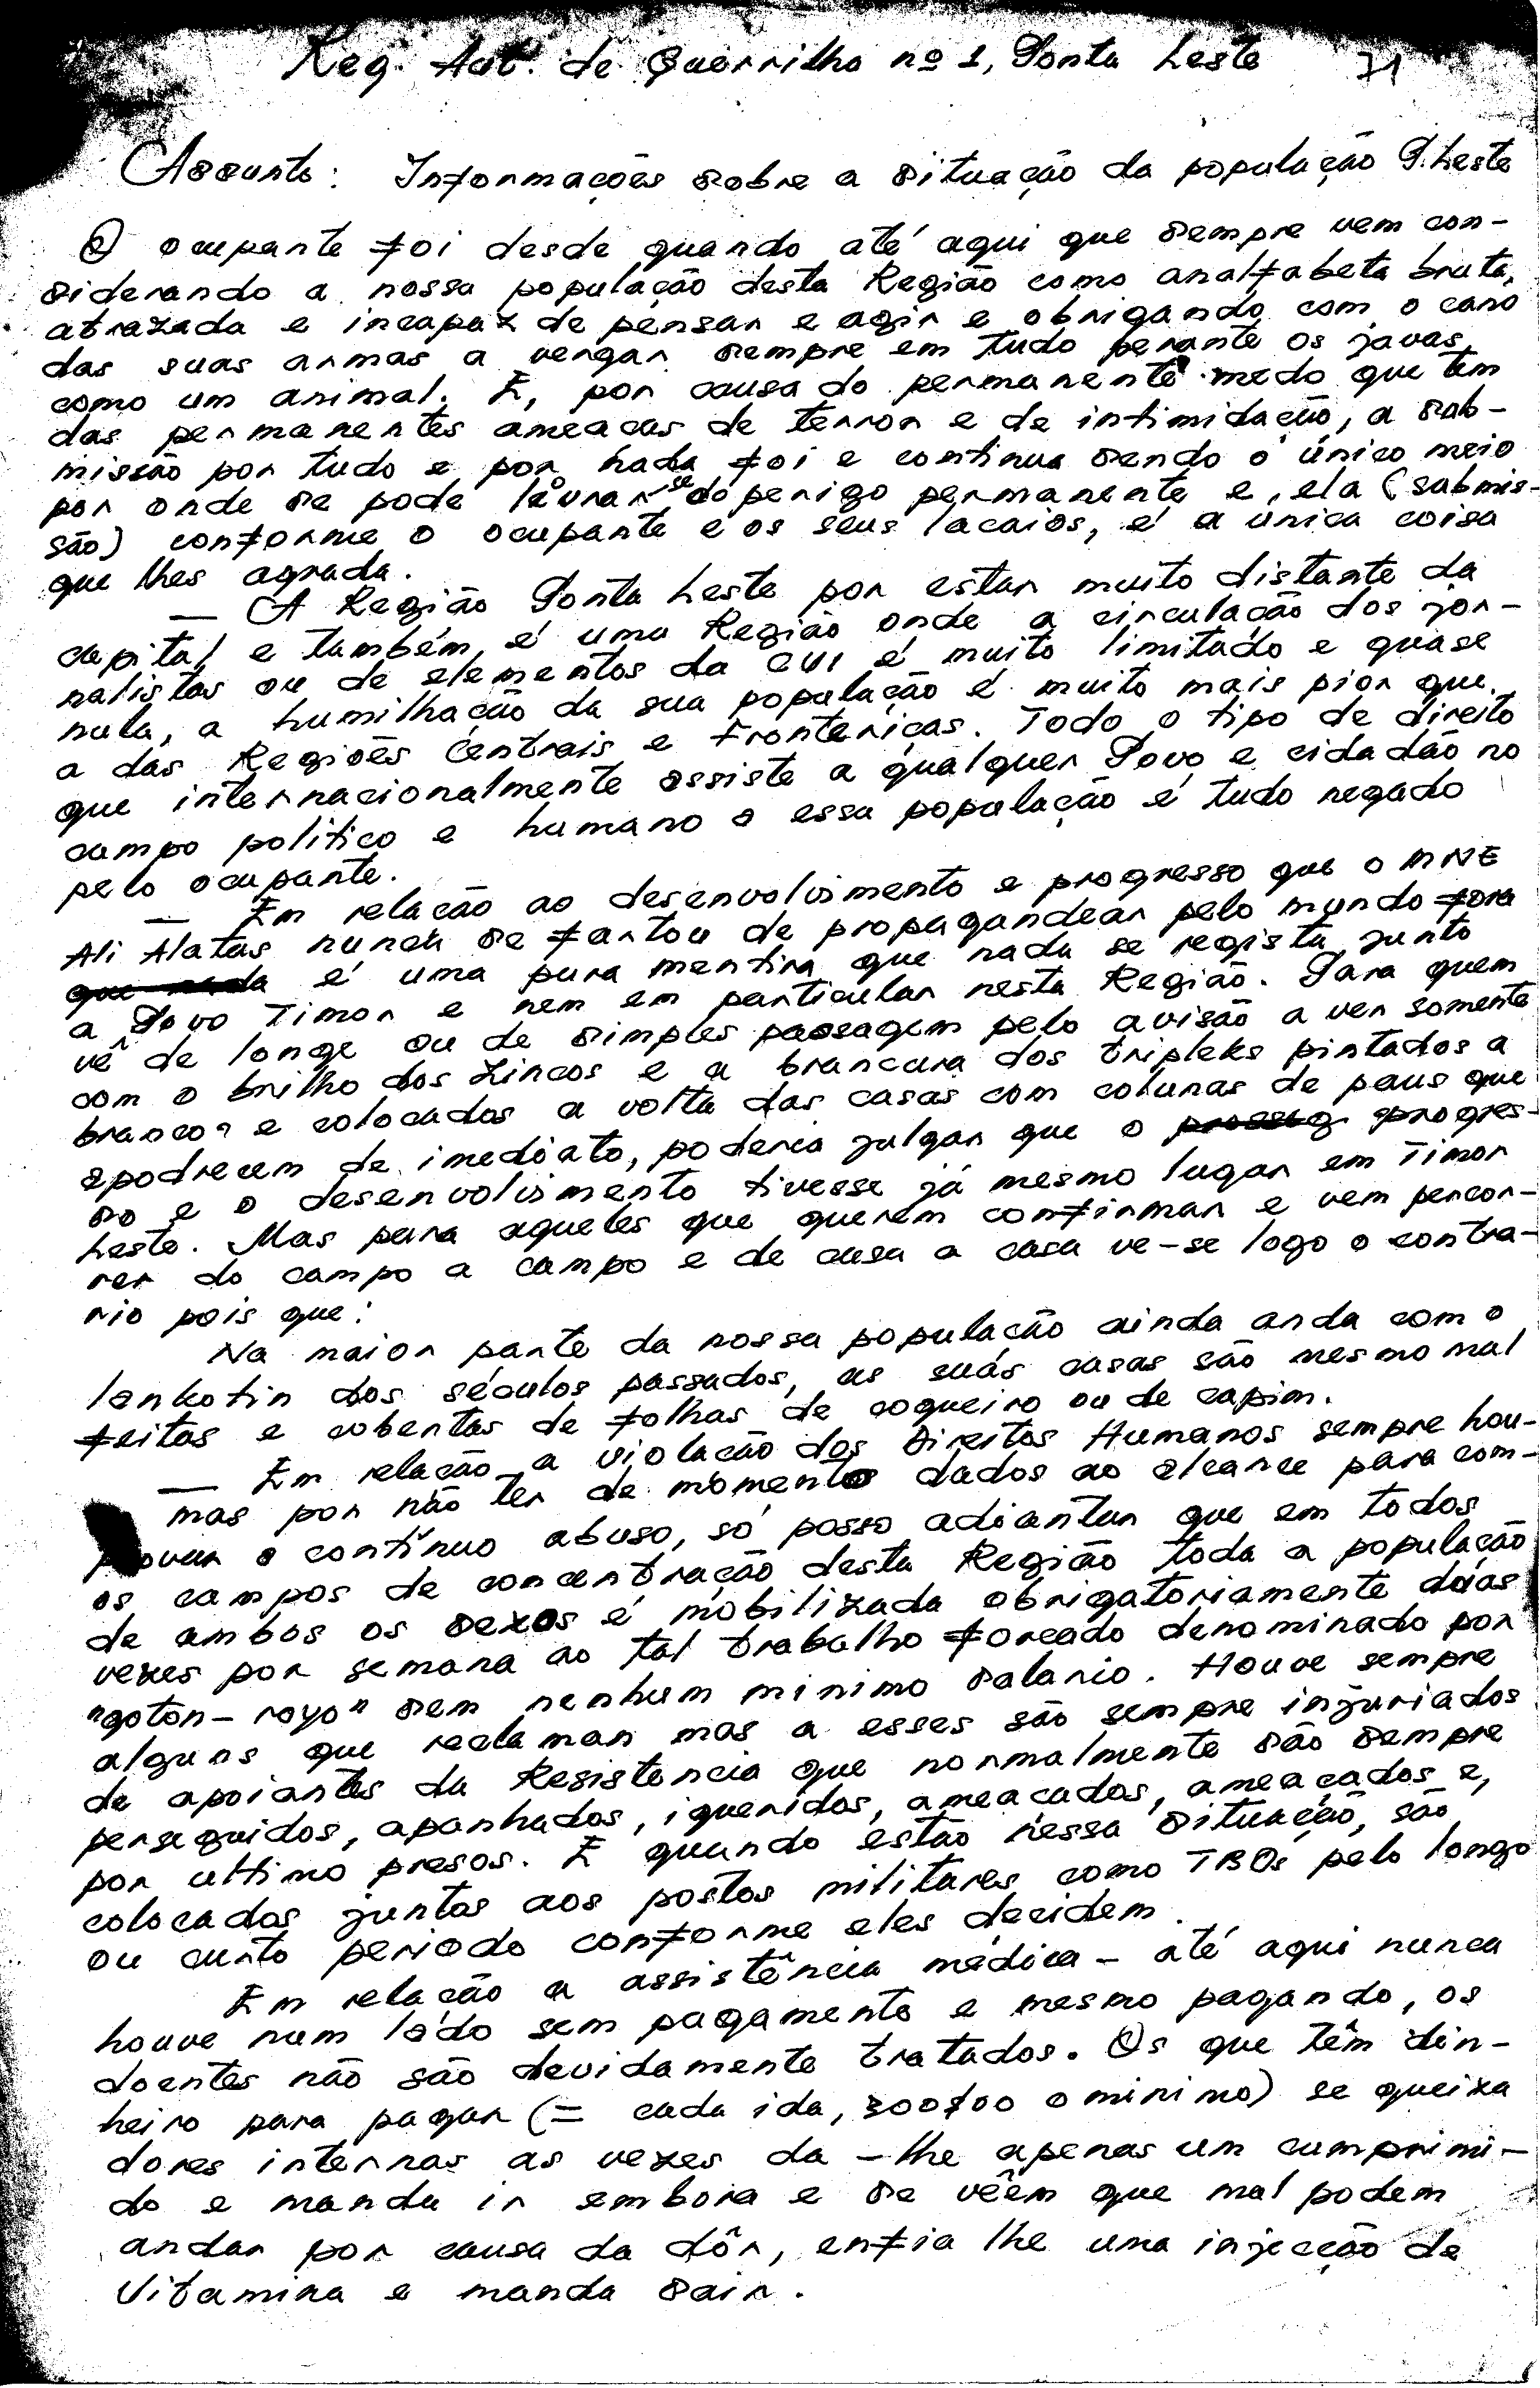 Reg. Aut. de Guerrilha nº 1, Ponta Leste 71
Assunto: Informações sobre a situação da população P. Leste
O ocupante foi desde quando até aqui que sempre vem con-
siderando a nossa população desta Região como analfabeta bruta,
atrazada e incapaz de pensar e agir e obrigando com o cano
das suas armas a vergar sempre em tudo perante os javas
como um animal. E, por causa do permanente medo que têm
das permanentes ameaças de terror e de intimidação, a sub-
missão por tudo e por nada foi e continua sendo o único meio
por onde se pode livrar-se do perigo permanente e, ela (submis-
são) conforme o ocupante e os seus lacaios, é a única coisa
que lhes agrada.
— A Região Ponta Leste por estar muito distante da
capital e também é uma Região onde a circulação dos jor-
nalistas ou de elementos da CVI é muito limitado e quase
nula, a humilhação da sua população é muito mais pior que
a das Regiões Centrais e Fronteriças. Todo o tipo de direito
que internacionalmente assiste a qualquer Povo e cidadão no
campo politico e humano a essa população é tudo negado
pelo ocupante.
— Em relação ao desenvolvimento e progresso que o MNE
Ali Alatas nunca se fartou de propagandear pelo mundo fora
que nada é uma pura mentira que nada se regista junto
a Povo Timor e nem em particular nesta Região. Para quem
vê de longe ou de simples passagem pelo avisão a ver somente
com o brilho dos zincos e a brancura dos tripleks pintados a
branco e colocados a volta das casas com colunas de paus que
apodrecem de imediato, poderia julgar que o progres-
so e o desenvolvimento tivesse já mesmo lugar em Timor
Leste. Mas para aqueles que querem confirmar e vem percor-
rer do campo a campo e de casa a casa ve-se logo o contra-
rio pois que:
Na maior parte da nossa população ainda anda com o
lankotin dos séculos passados, as suas casas são mesmo mal
feitas e cobertas de folhas de coqueiro ou de capim.
— Em relação a violação dos Direitos Humanos sempre hou-
mas por não ter de momento dados ao alcance para com-
provar o contínuo abuso, só posso adiantar que em todos
os campos de concentração desta Região toda a população
de ambos os sexos é mobilizada obrigatoriamente duas
vezes por semana ao tal trabalho forçado denominado por
"goton-royo" sem nenhum minimo salario. Houve sempre
alguns que reclamam mas a esses são sempre injuriados
de apoiantes da Resistencia que normalmente são sempre
perseguidos, apanhados, iqueridos, ameaçados, ameaçados e,
por ultimo presos. E quando estão nessa situação, são
colocados juntos aos postos militares como TBOs pelo longo
ou curto periodo conforme eles decidem.
Em relação a assistência médica - até aqui nunca
houve num lado sem pagamento e mesmo pagando, os
doentes não são devidamente tratados. Os que têm din-
heiro para pagar (= cada ida, 300$00 o minimo) se queixa
dores internas as vezes da-lhe apenas um cumprimi-
do e manda ir embora e se vêem que mal podem
andar por causa da dôr, enfia lhe uma injecção de
Vitamina e manda sair.